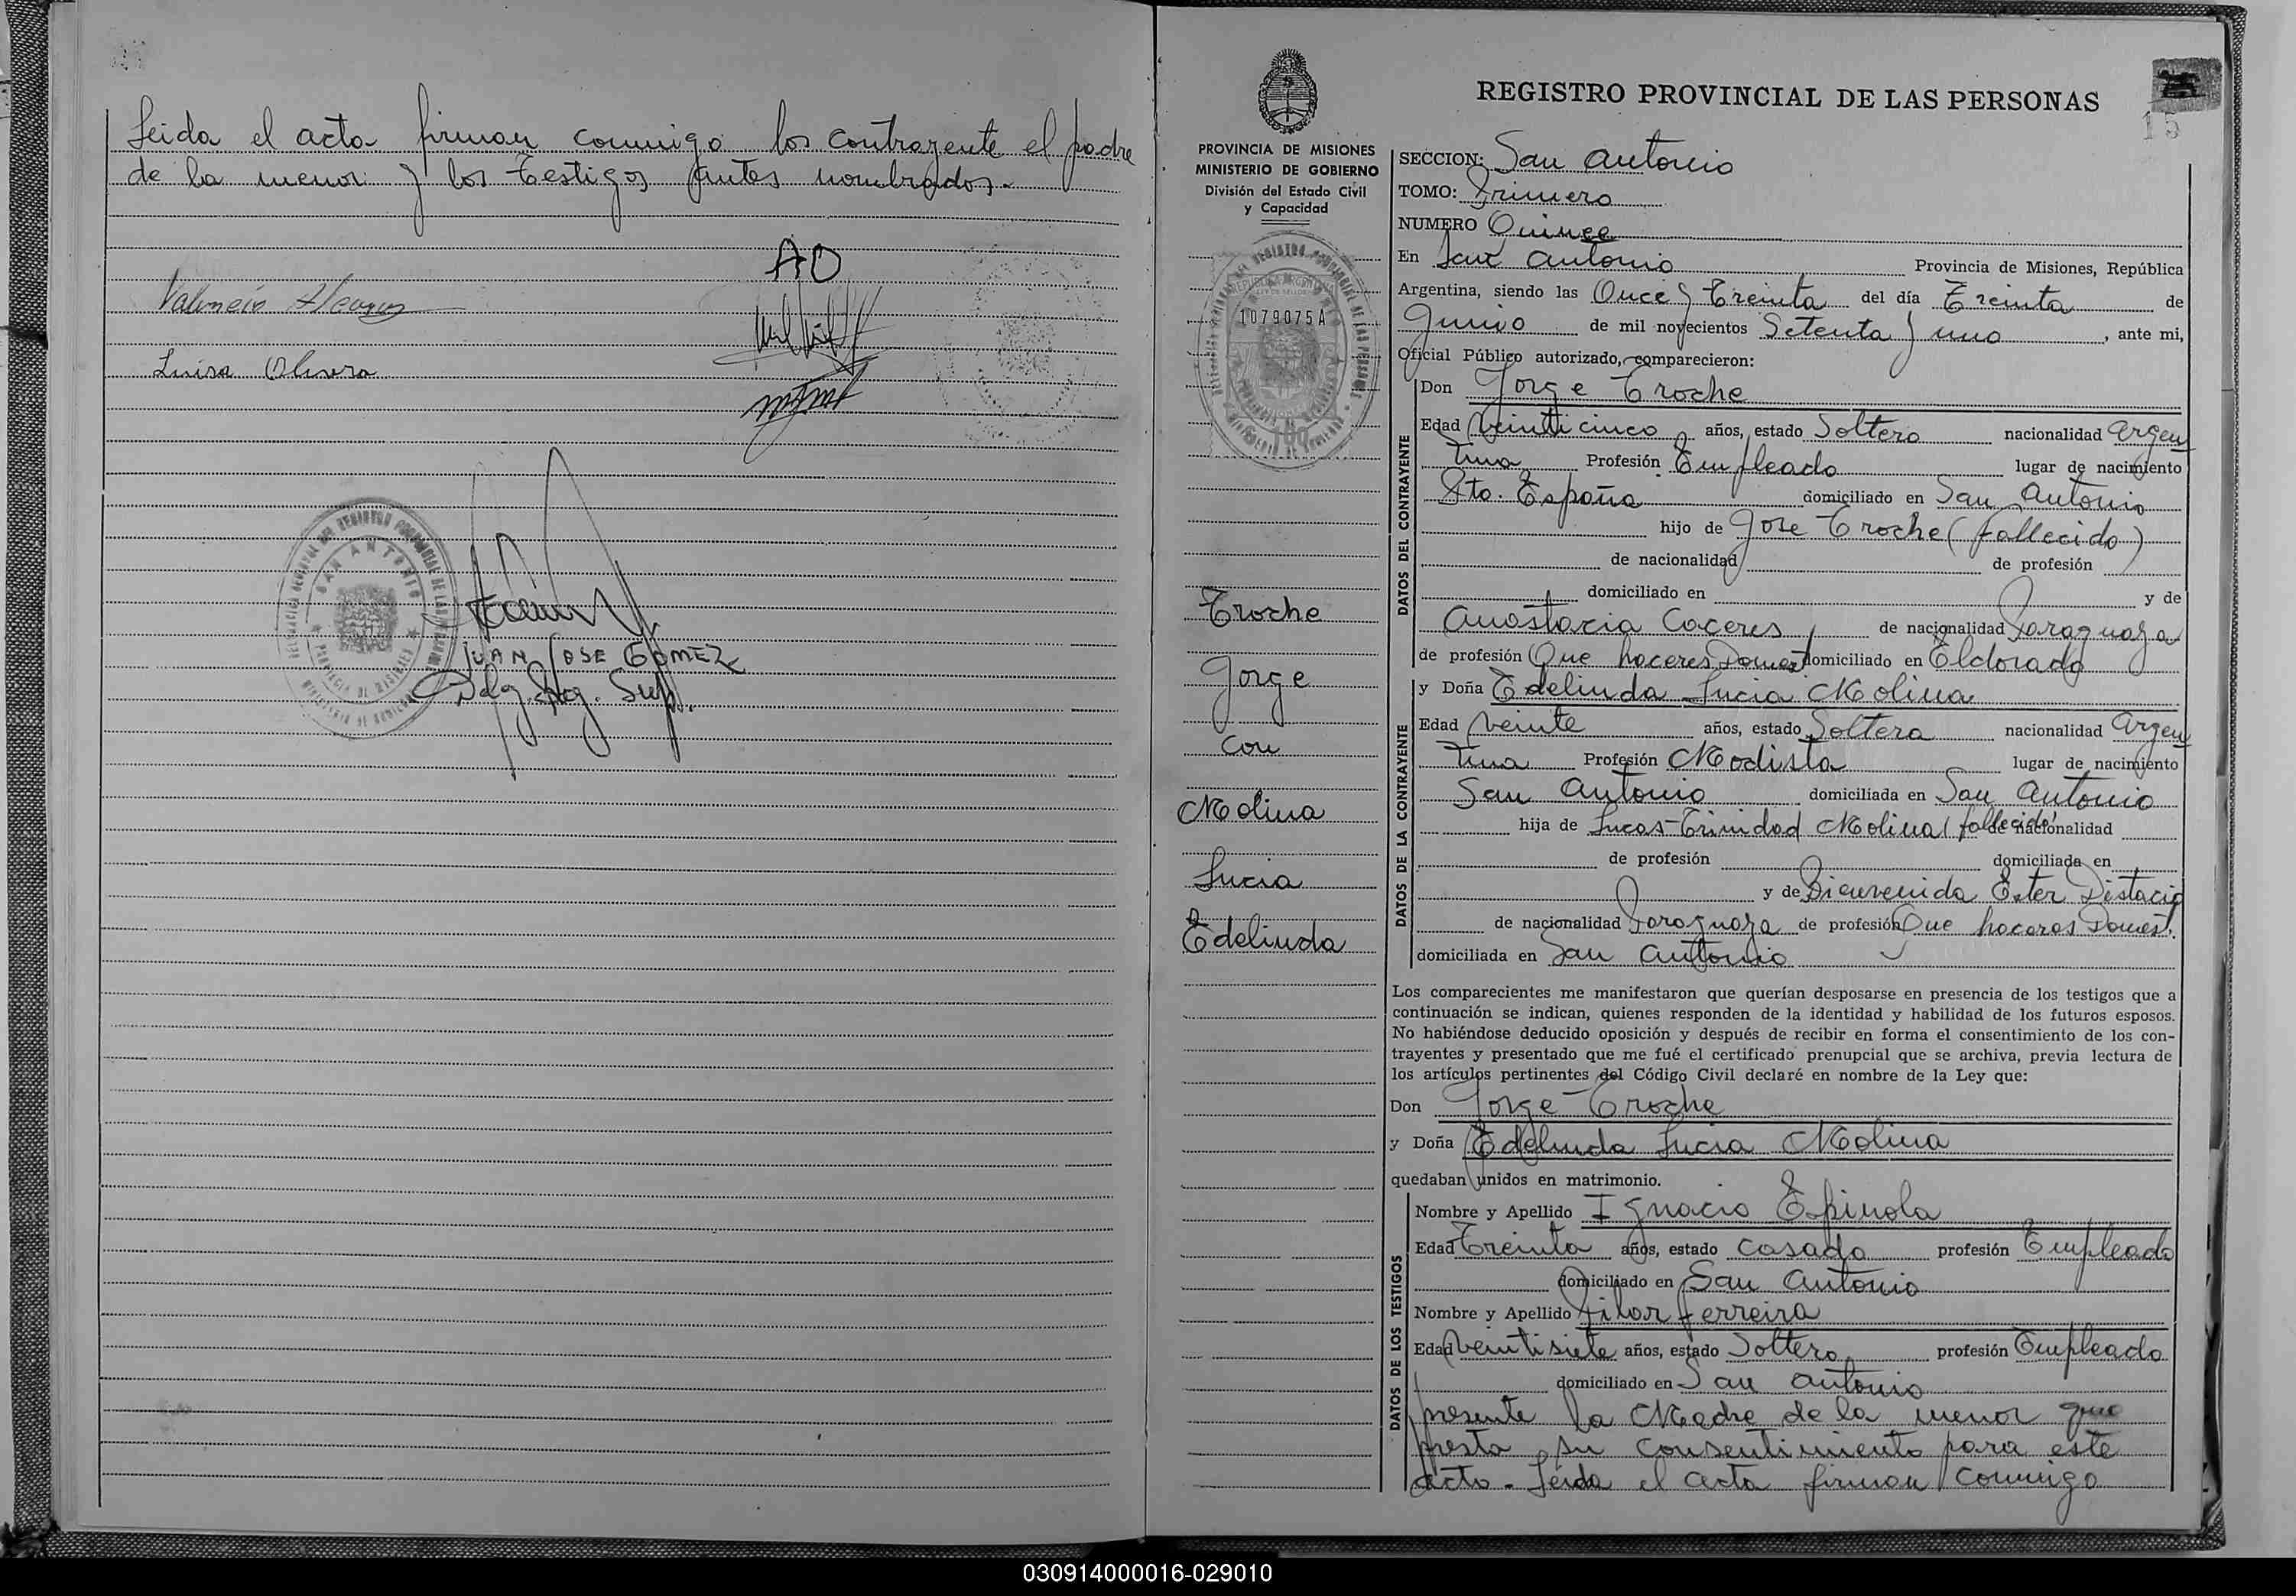 Leida el acta firman conmigo los contrayente el padre
de la menor y los testigos antes nombrados.-
AO
Luisa Olivera
JUAN JOSE GOMEZ
SAN ANTONIO
PROVINCIA DE MISIONES
PROVINCIA DE MISIONES
MINISTERIO DE GOBIERNO
División del Estado Civil
y Capacidad
1079075A
Troche
Jorge
con
Molina
Lucia
Edelinda
REGISTRO PROVINCIAL DE LAS PERSONAS
15
SECCION: San Antonio
TOMO: Primero
NUMERO Quince
En San Antonio Provincia de Misiones, República
Argentina, siendo las Once y Treinta del día Treinta de
Junio de mil novecientos Setenta y uno, ante mi,
Oficial Público autorizado, comparecieron:
DATOS DEL CONTRAYENTE
Don Jorge Troche
Edad Veinticinco años, estado Soltero nacionalidad Argen
tina Profesión Empleado lugar de nacimiento
Pto. España domiciliado en San Antonio
hijo de Jose Troche (fallecido)
de nacionalidad de profesión
domiciliado en y de
Anastacia Caceres de nacionalidad Paraguaya
de profesión Que haceres Domest domiciliado en Eldorado
DATOS DE LA CONTRAYENTE
y Doña Edelinda Lucia Molina
Edad Veinte años, estado Soltera nacionalidad Argen
tina Profesión Modista lugar de nacimiento
San Antonio domiciliada en San Antonio
hija de Lucas Trinidad Molina (fallecido) de nacionalidad
de profesión domiciliada en
y de Bienvenida Ester
de nacionalidad Paraguaya de profesión Que haceres Domest.
domiciliada en San Antonio
Los comparecientes me manifestaron que querían desposarse en presencia de los testigos que a
continuación se indican, quienes responden de la identidad y habilidad de los futuros esposos.
No habiéndose deducido oposición y después de recibir en forma el consentimiento de los con-
trayentes y presentado que me fué el certificado prenupcial que se archiva, previa lectura de
los artículos pertinentes del Código Civil declaré en nombre de la Ley que:
Don Jorge Troche
y Doña Edelinda Lucia Molina
quedaban unidos en matrimonio.
DATOS DE LOS TESTIGOS
Nombre y Apellido Ignacio Espinola
Edad Treinta años, estado Casado profesión Empleado
domiciliado en San Antonio
Nombre y Apellido Ferreira
Edad Veintisiete años, estado Soltero profesión Empleado
domiciliado en San Antonio
presente la Madre de la menor que
presta su consentimiento para este
acto.- Leida el acta firman conmigo
030914000016-029010